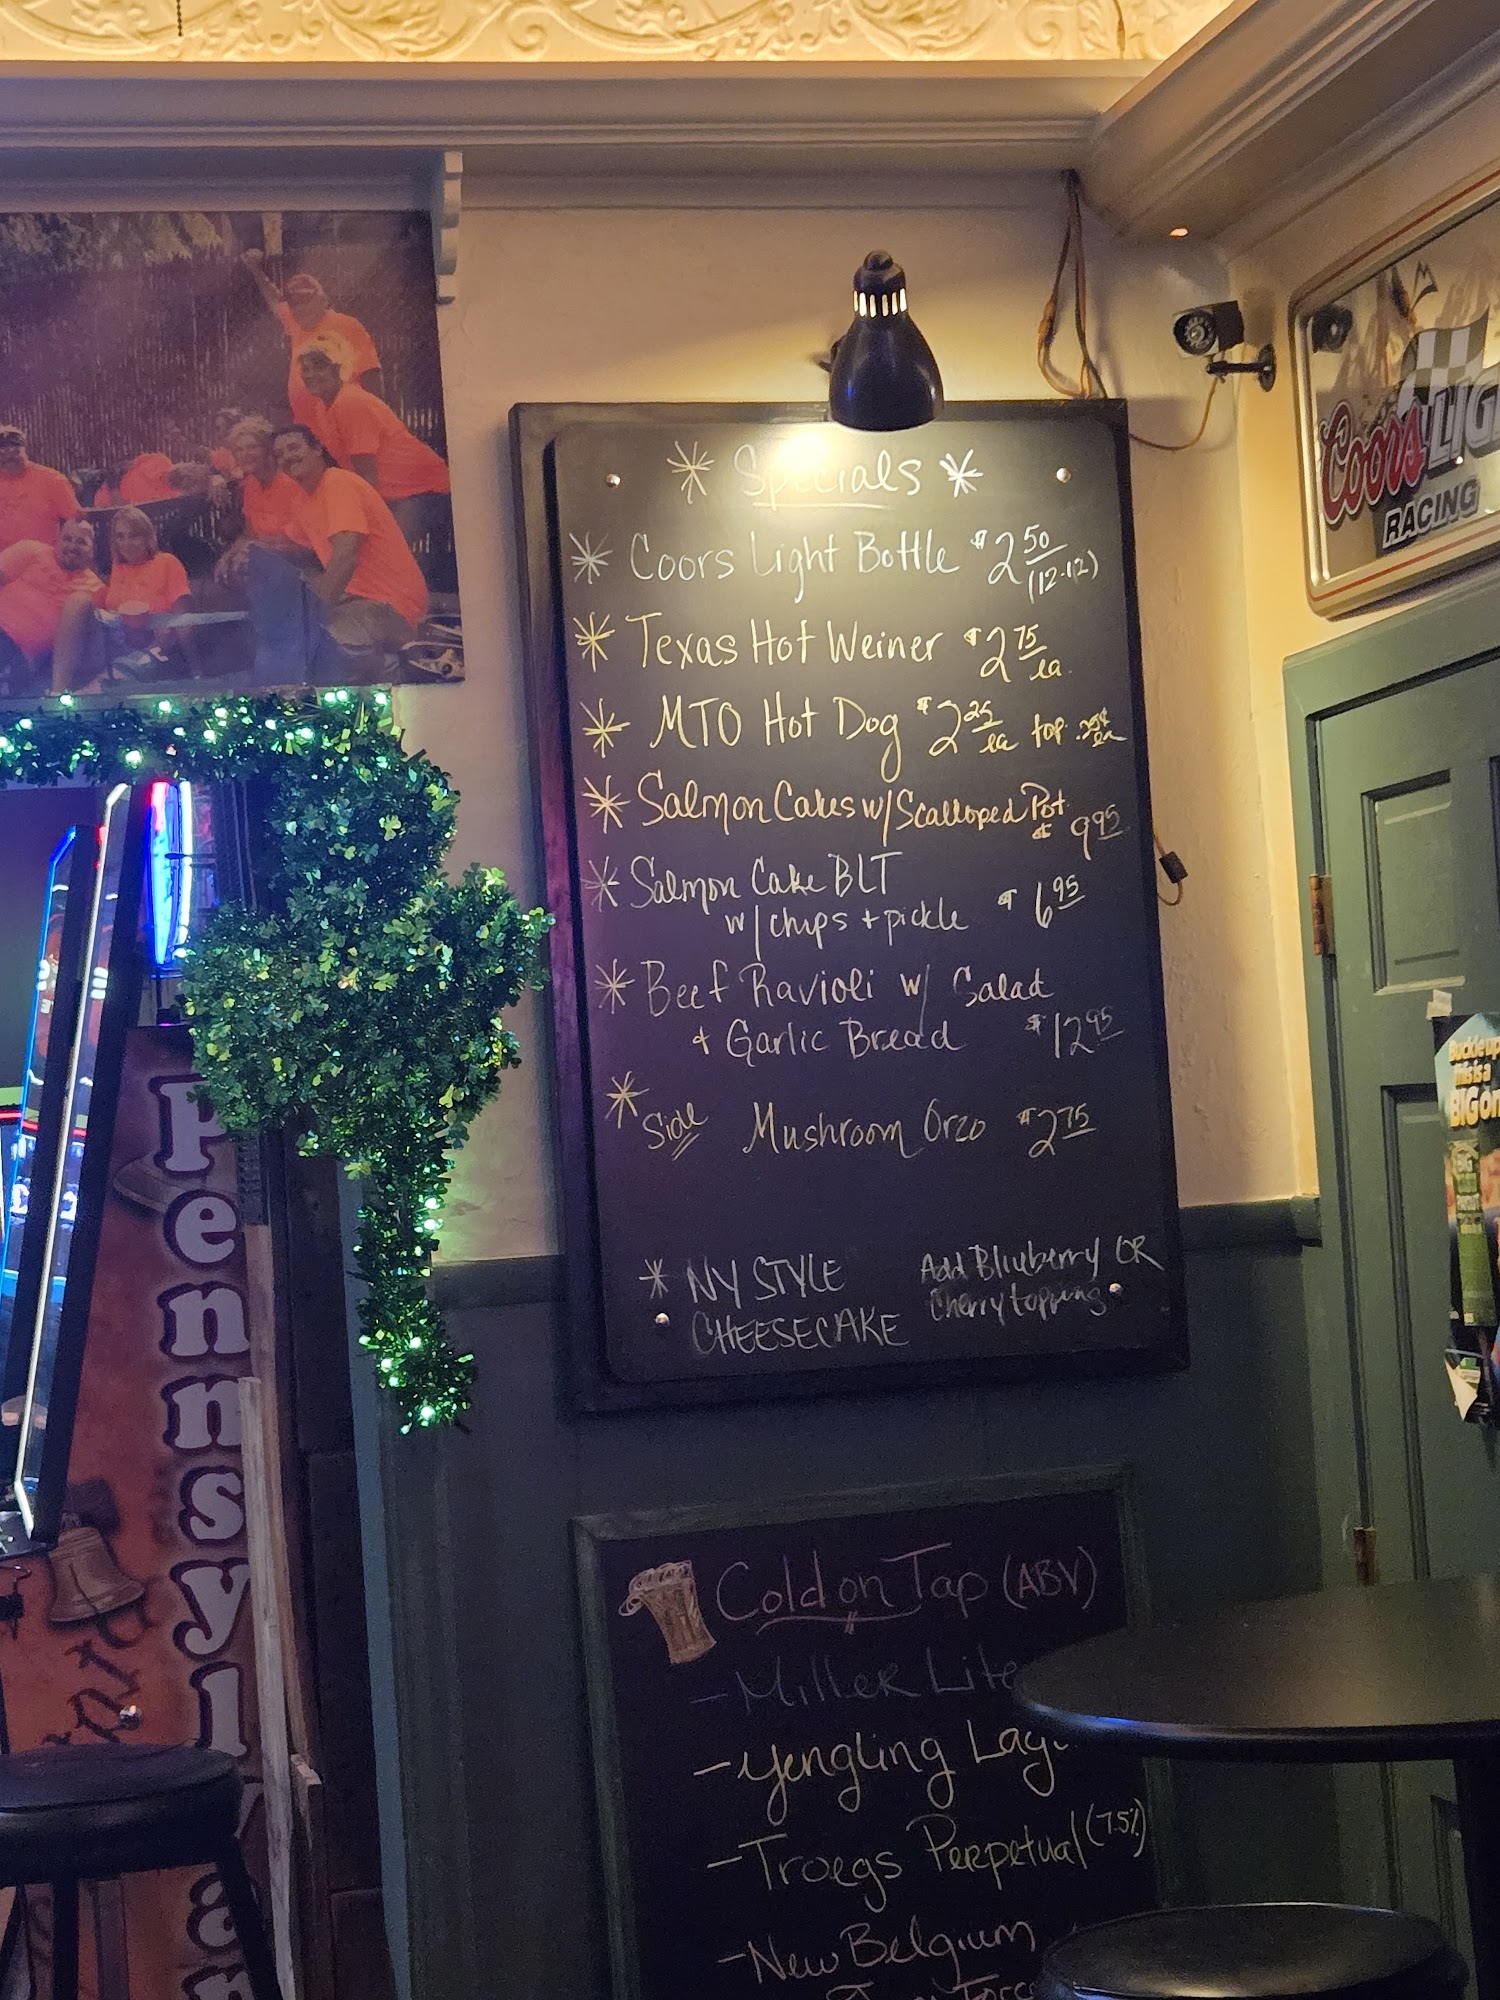 * Specials *
* Coors Light Bottle $2.50 (12-12)
* Texas Hot Weiner $2.75 ea.
* MTO Hot Dog $2.25 ea top .25¢ ea
* Salmon Cakes w/ Scalloped Pot $9.95
* Salmon Cake BLT
w/ chips + pickle $6.95
* Beef Ravioli w/ Salad
+ Garlic Bread $12.95
* Side Mushroom Orzo $2.75
* NY STYLE
CHEESECAKE
Add Blueberry OR
Cherry topping
Cold on Tap (ABV)
- Miller Lite
- Yengling Lag
- Troegs Perpetual (7.5%)
- New Belgium
Coors LIGH
RACING
Buckle up
this is a
BIG on
BIG
Pennsylvan